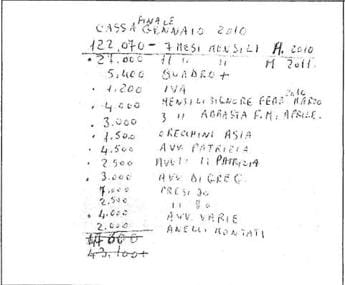 FINALE
CASSA GENNAIO 2010
122,070 - 7 MESI MENSILI A. 2010
. 27.000 11 " " M 2011
5,400 QUADRO +
. 1.200 IVA
. 4.000 MENSILI SIGNORE FEBB MARZO 2010
. 3.000 3 " F.M. APRILE.
. 1.500 ORECCHINI ASIA
. 4.500 AVV PATRIZIA
. 2.500 PATRIZIA
. 3.000 AVV. DI GREG.
7.000 PRESI DO
2.500 " DO
. 4.000 AVV. VARIE
2.000 ANELLI MONTATI
43,100+